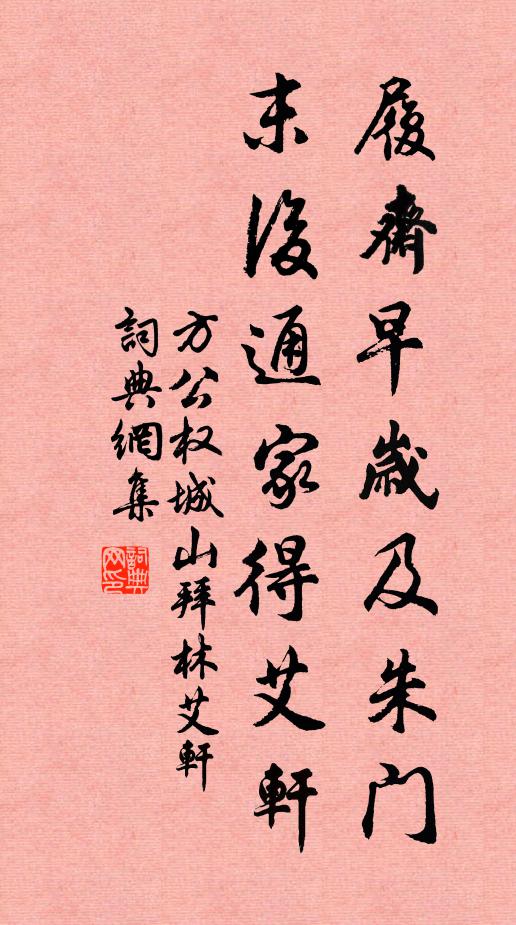 履齋早歲及朱門
末後通家得艾軒
方公权城山拜林艾軒
詞典網集
詞典网印